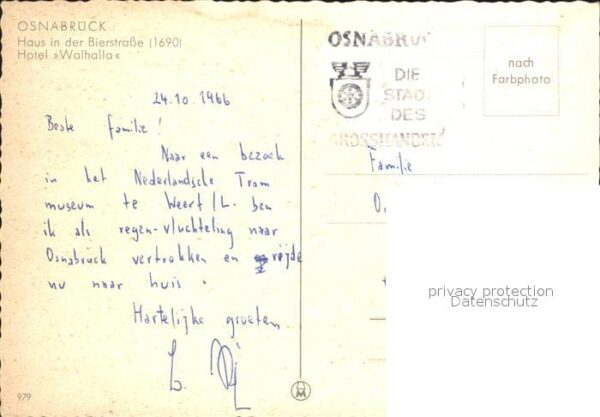 OSNABRÜCK
Haus in der Bierstraße (1690)
Hotel »Walhalla«
24.10.1966
Beste familie!
Naar een bezoek
in het Nederlandsche Tram
museum te Weert/L. ben
ik als regen-vluchteling naar
Osnabrück vertrokken en rijde
nu naar huis.
Hartelijke groeten
979
OSNABRÜCK
DIE
STADT
DES
GROSSHANDELS
nach
Farbphoto
Familie
privacy protection
Datenschutz